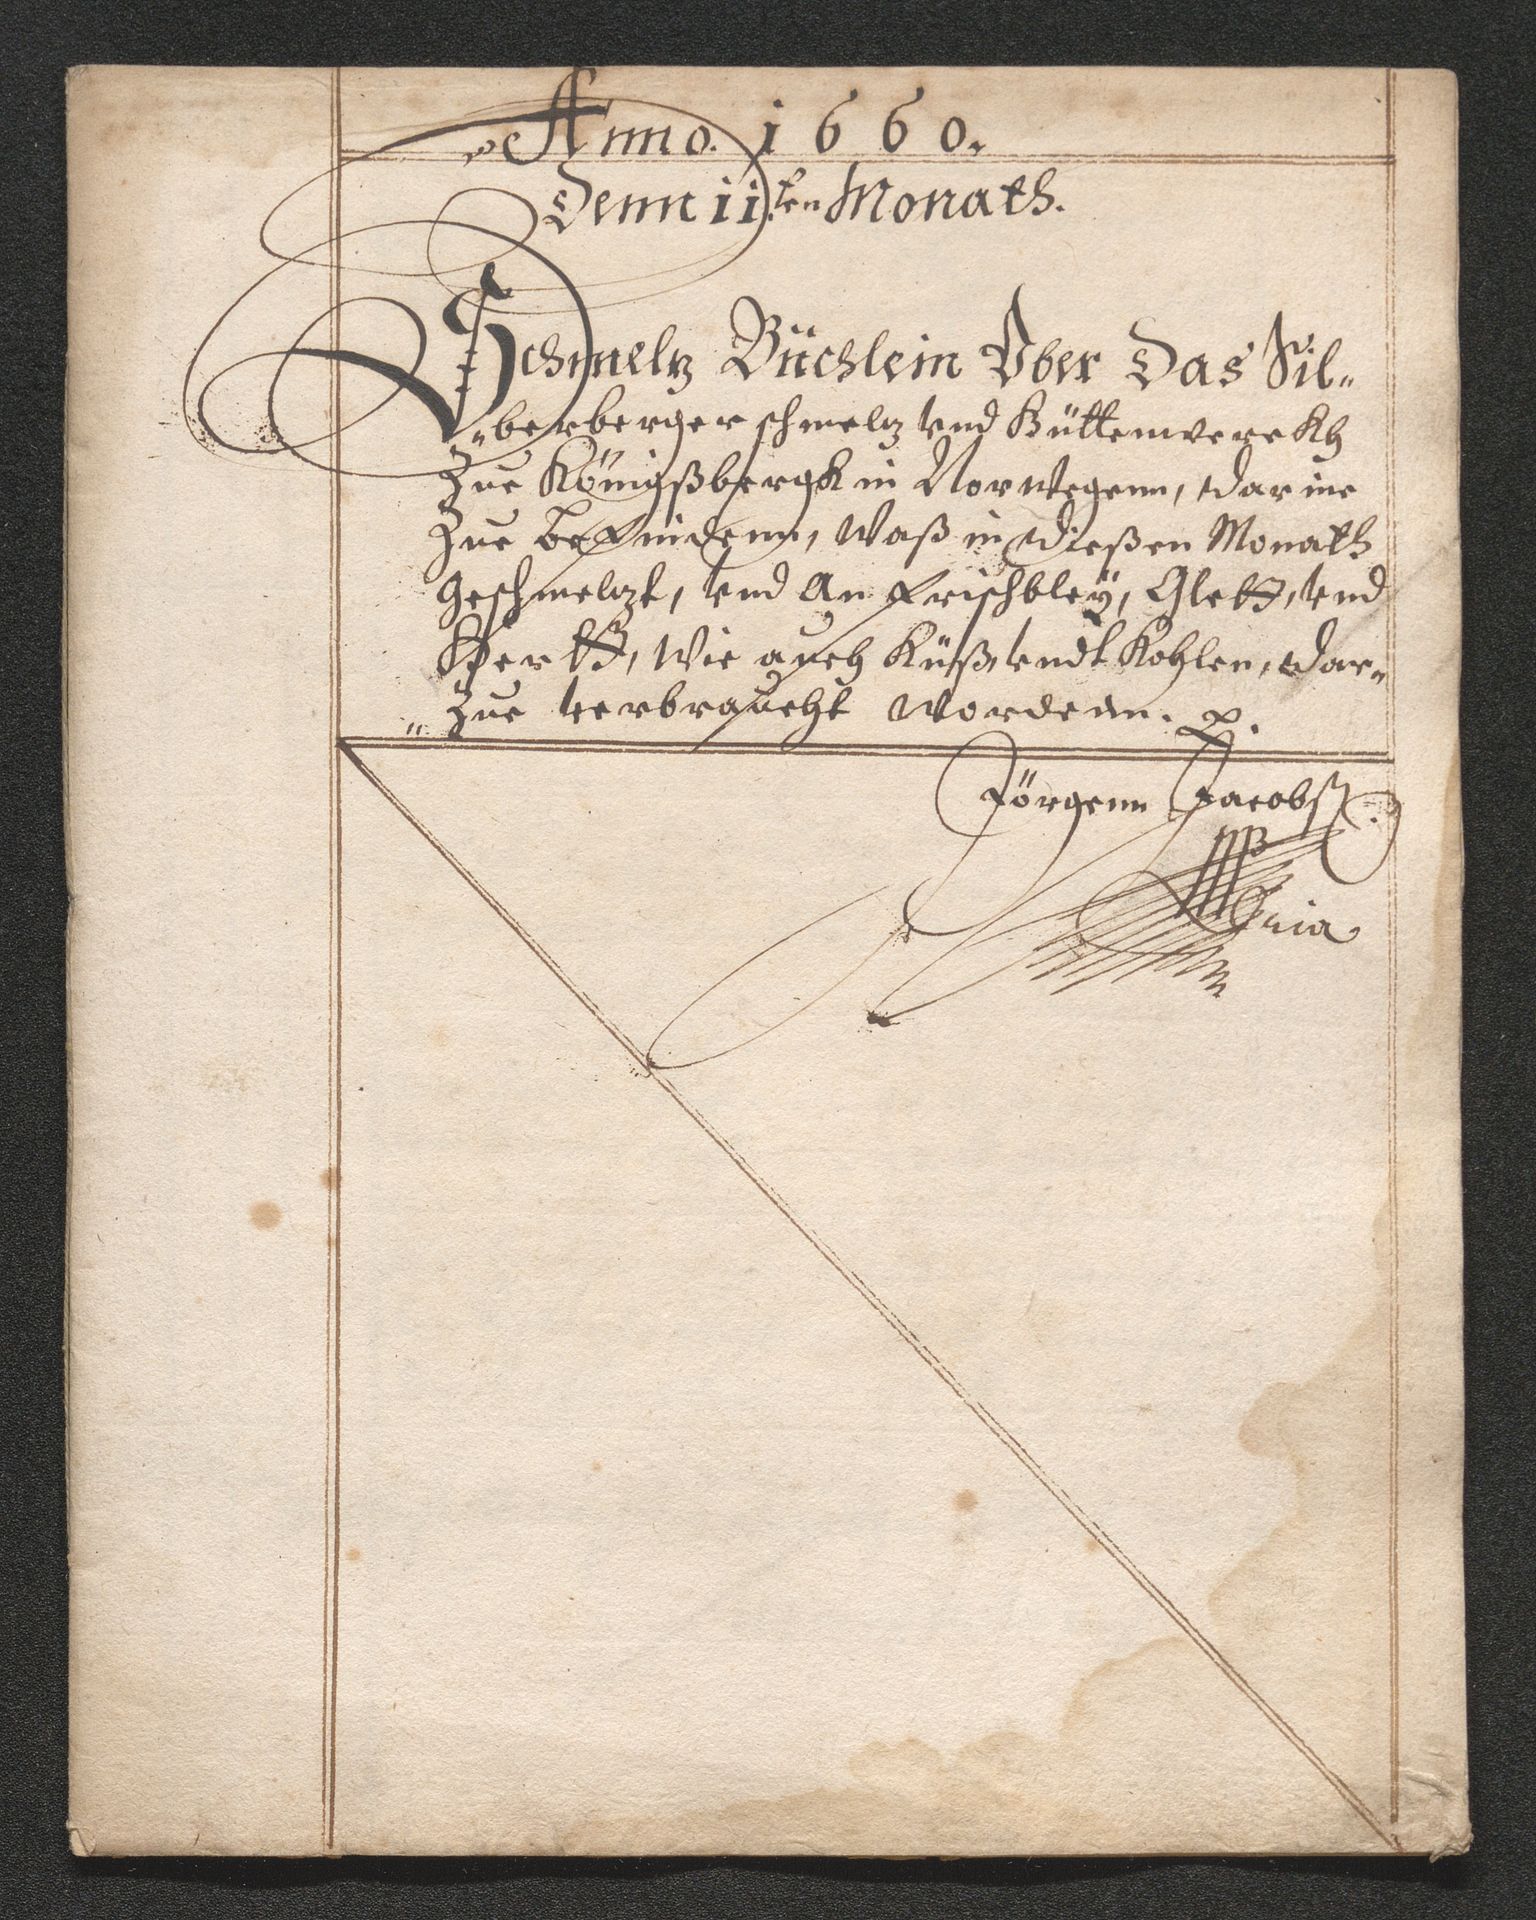 Anno. 1660.
Denn 11.ten Monath.
Schmeltz Büchlein Vber Das Sil-
berberger schmeltz vnd Hüttenwerckh
Zue Königßbergk in Norwegenn, darine
Zue befindenn, Waß in dießen Monath
geschmeltzt, vnd An Frischbley, Glett, vnd
Hertt, Wie auch Küß, vndt Kohlen, dar-
Zue verbraucht wordenn. p.
Jörgenn Jacobß